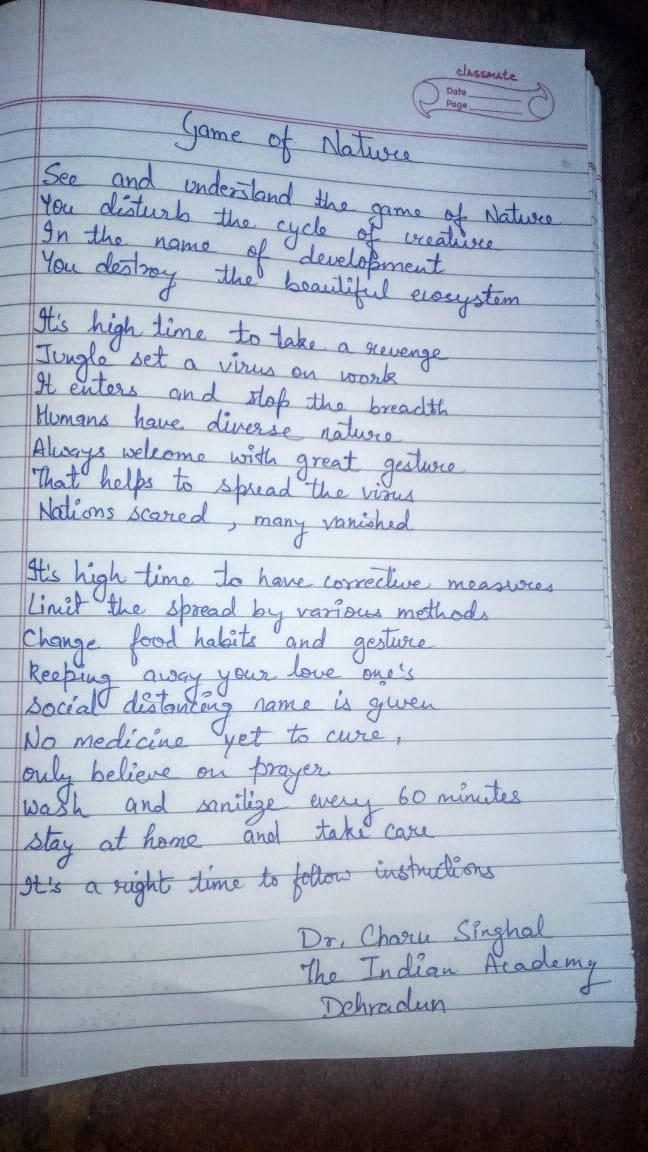 classmate
Date
Page
Game of Nature
See and understand the game of Nature
You disturb the cycle of creature
In the name of development
You destroy the beautiful ecosystem
It's high time to take a revenge
Jungle set a virus on work
It enters and stop the breadth
Humans have diverse nature
Always welcome with great gesture
That helps to spread the virus
Nations scared, many vanished
It's high time to have corrective measures
Limit the spread by various methods
Change food habits and gesture
Keeping away your love one's
social distancing name is given
No medicine yet to cure,
only believe on prayer
wash and sanitize every 60 minutes
stay at home and take care
It's a right time to follow instructions
Dr. Charu Singhal
The Indian Academy
Dehradun